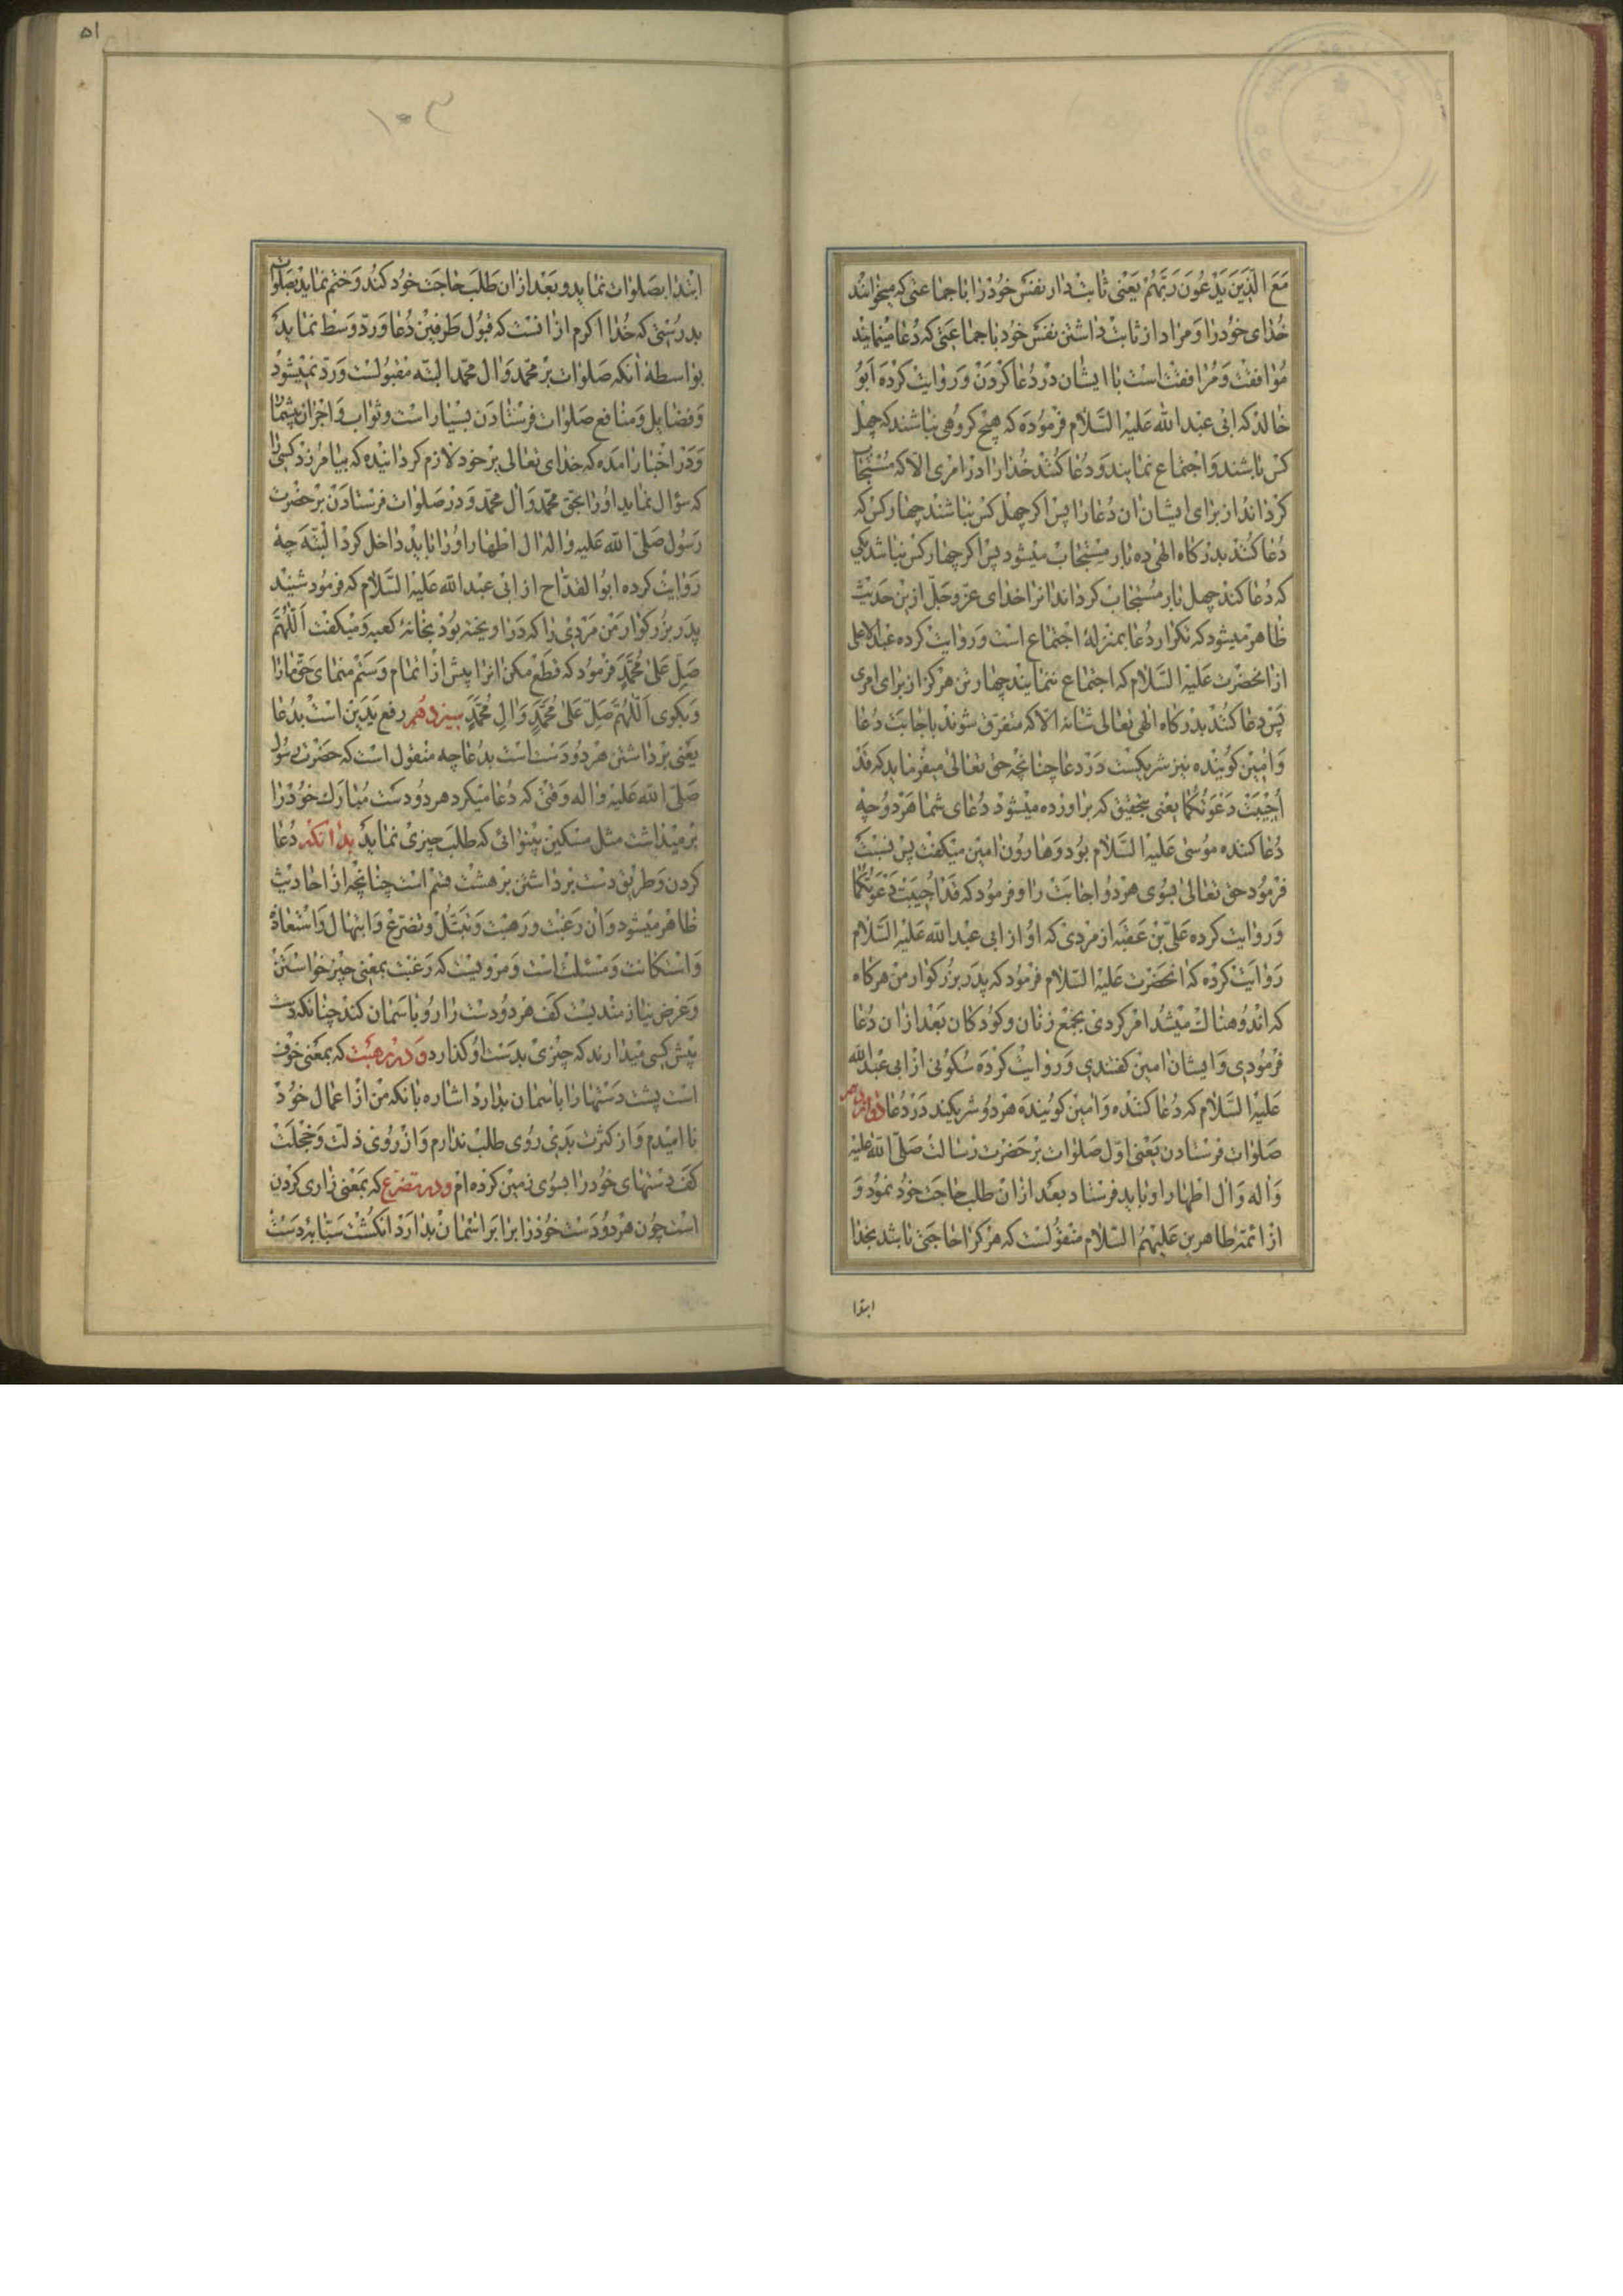 مَعَ الَّذينَ يَدْعُونَ رَبَّهُمْ يَعْنى ثابت دار نفس خود را با جماعتى كه ميخوانند
خداى خود را و مراد از ثابت داشتن نفس خود با جماعتى كه دعا مينمايند
موافقت و مرافقت است با ايشان در دعا كردن و روايت كرده ابو
خالد كه ابى عبد الله عليه السلام فرموده كه هيچ كروهى نباشند كه چهل
كس باشند و اجتماع نمايند و دعا كنند خدا را در امرى الا كه مستجاب
كرداند از براى ايشان ان دعا را پس اكر چهل كس نباشند چهار كس كه
دعا كنند بدركاه الهى ده بار مستجاب ميشود پس اكر چهار كس نباشد يكى
كه دعا كند چهل بار مستجاب كرداند انرا خداى عز و جل ازين حديث
ظاهر ميشود كه تكرار دعا بمنزله اجتماع است و روايت كرده عبد الاعلى
از انحضرت عليه السلام كه اجتماع ننمايند چهار تن هركز از براى امرى
پس دعا كنند بدركاه الهى تعالى شانه الا كه متفرق شوند باجابت دعا
و امين كوينده نيز شريكست در دعا چنانچه حق تعالى ميفرمايد كه قد
اجيبت دعوتكما يعنى بتحقيق كه براورده ميشود دعاى شما هر دو چه
دعا كننده موسى عليه السلام بود و هارون امين ميكفت پس نسبت
فرمود حق تعالى بسوى هر دو اجابت را و فرمود كه قد اجيبت دعوتكما
و روايت كرده على بن عقبه از مردى كه او از ابى عبد الله عليه السلام
روايت كرده كه انحضرت عليه السلام فرمود كه پدر بزركوار من هركاه
كه اندوهناك ميشد امر كردى بجمع زنان و كودكان بعد ازان دعا
فرمودى و ايشان امين كفتندى و روايت كرده سكونى از ابى عبد الله
عليه السلام كه دعا كننده و امين كوينده هر دو شريكند در دعا دوازدهم
صلوات فرستادن يعنى اول صلوات بر حضرت رسالت صلى الله عليه
و اله و ال اطهار او بايد فرستاد بعد ازان طلب حاجت خود نمود و
از ائمه طاهرين عليهم السلام منقولست كه هركرا حاجتى باشد بخدا
ابتدا
۵۱
۱۰۳
ابتدا بصلوات نمايد و بعد ازان طلب حاجت خود كند و ختم نمايد بصلوات
بدرستى كه خدا اكرم ازانست كه قبول طرفين دعا و رد وسط نمايد
بواسطه انكه صلوات بر محمد و ال محمد البته مقبولست و رد نميشود
و فضايل و منافع صلوات فرستادن بسيار است و ثواب و اجر ان بيشمار
و در اخبار امده كه خداى تعالى بر خود لازم كردانيده كه بيامرزد كسى را
كه سؤال نمايد او را بحق محمد و ال محمد و در صلوات فرستادن بر حضرت
رسول صلى الله عليه و اله ال اطهار او را بايد داخل كرد البته چه
روايت كرده ابو القداح از ابى عبد الله عليه السلام كه فرمود شنيد
پدر بزركوار من مردى را كه در اويخته بود بخانه كعبه و ميكفت اللهم
صل على محمد فرمود كه قطع مكن انرا پيش از اتمام و ستم منماى حق ما را
و بكوى اللهم صل على محمد و ال محمد سيزدهم رفع يدين است بدعا
يعنى برداشتن هر دو دست است بدعا چه منقول است كه حضرت رسول
صلى الله عليه و اله وقتى كه دعا ميكرد هر دو دست مبارك خود را
برميداشت مثل مسكين بينوائى كه طلب چيزى نمايد بدانكه دعا
كردن و طريق دست برداشتن بر هشت قسم است چنانچه از احاديث
ظاهر ميشود و ان رغبت و رهبت و تبتل و تضرع و ابتهال و استعاذه
و استكانت و مسئلت است و مرويست كه رغبت بمعنى چيز خواستن
و عرض نيازمنديست كف هر دو دست را رو باسمان كند چنانكه دست
پيش كسى ميدارند كه چيزى بدست او كذارد و در رهبت كه بمعنى خوف
است پشت دستها را باسمان بدارد اشاره بانكه من از اعمال خود
نا اميدم و از كثرت بدى روى طلب ندارم و از روى ذلت و خجلت
كف دستهاى خود را بسوى زمين كرده ام و در تضرع كه بمعنى زارى كردن
است چون هر دو دست خود را برابر اسمان بدارد انكشت سبابه دست